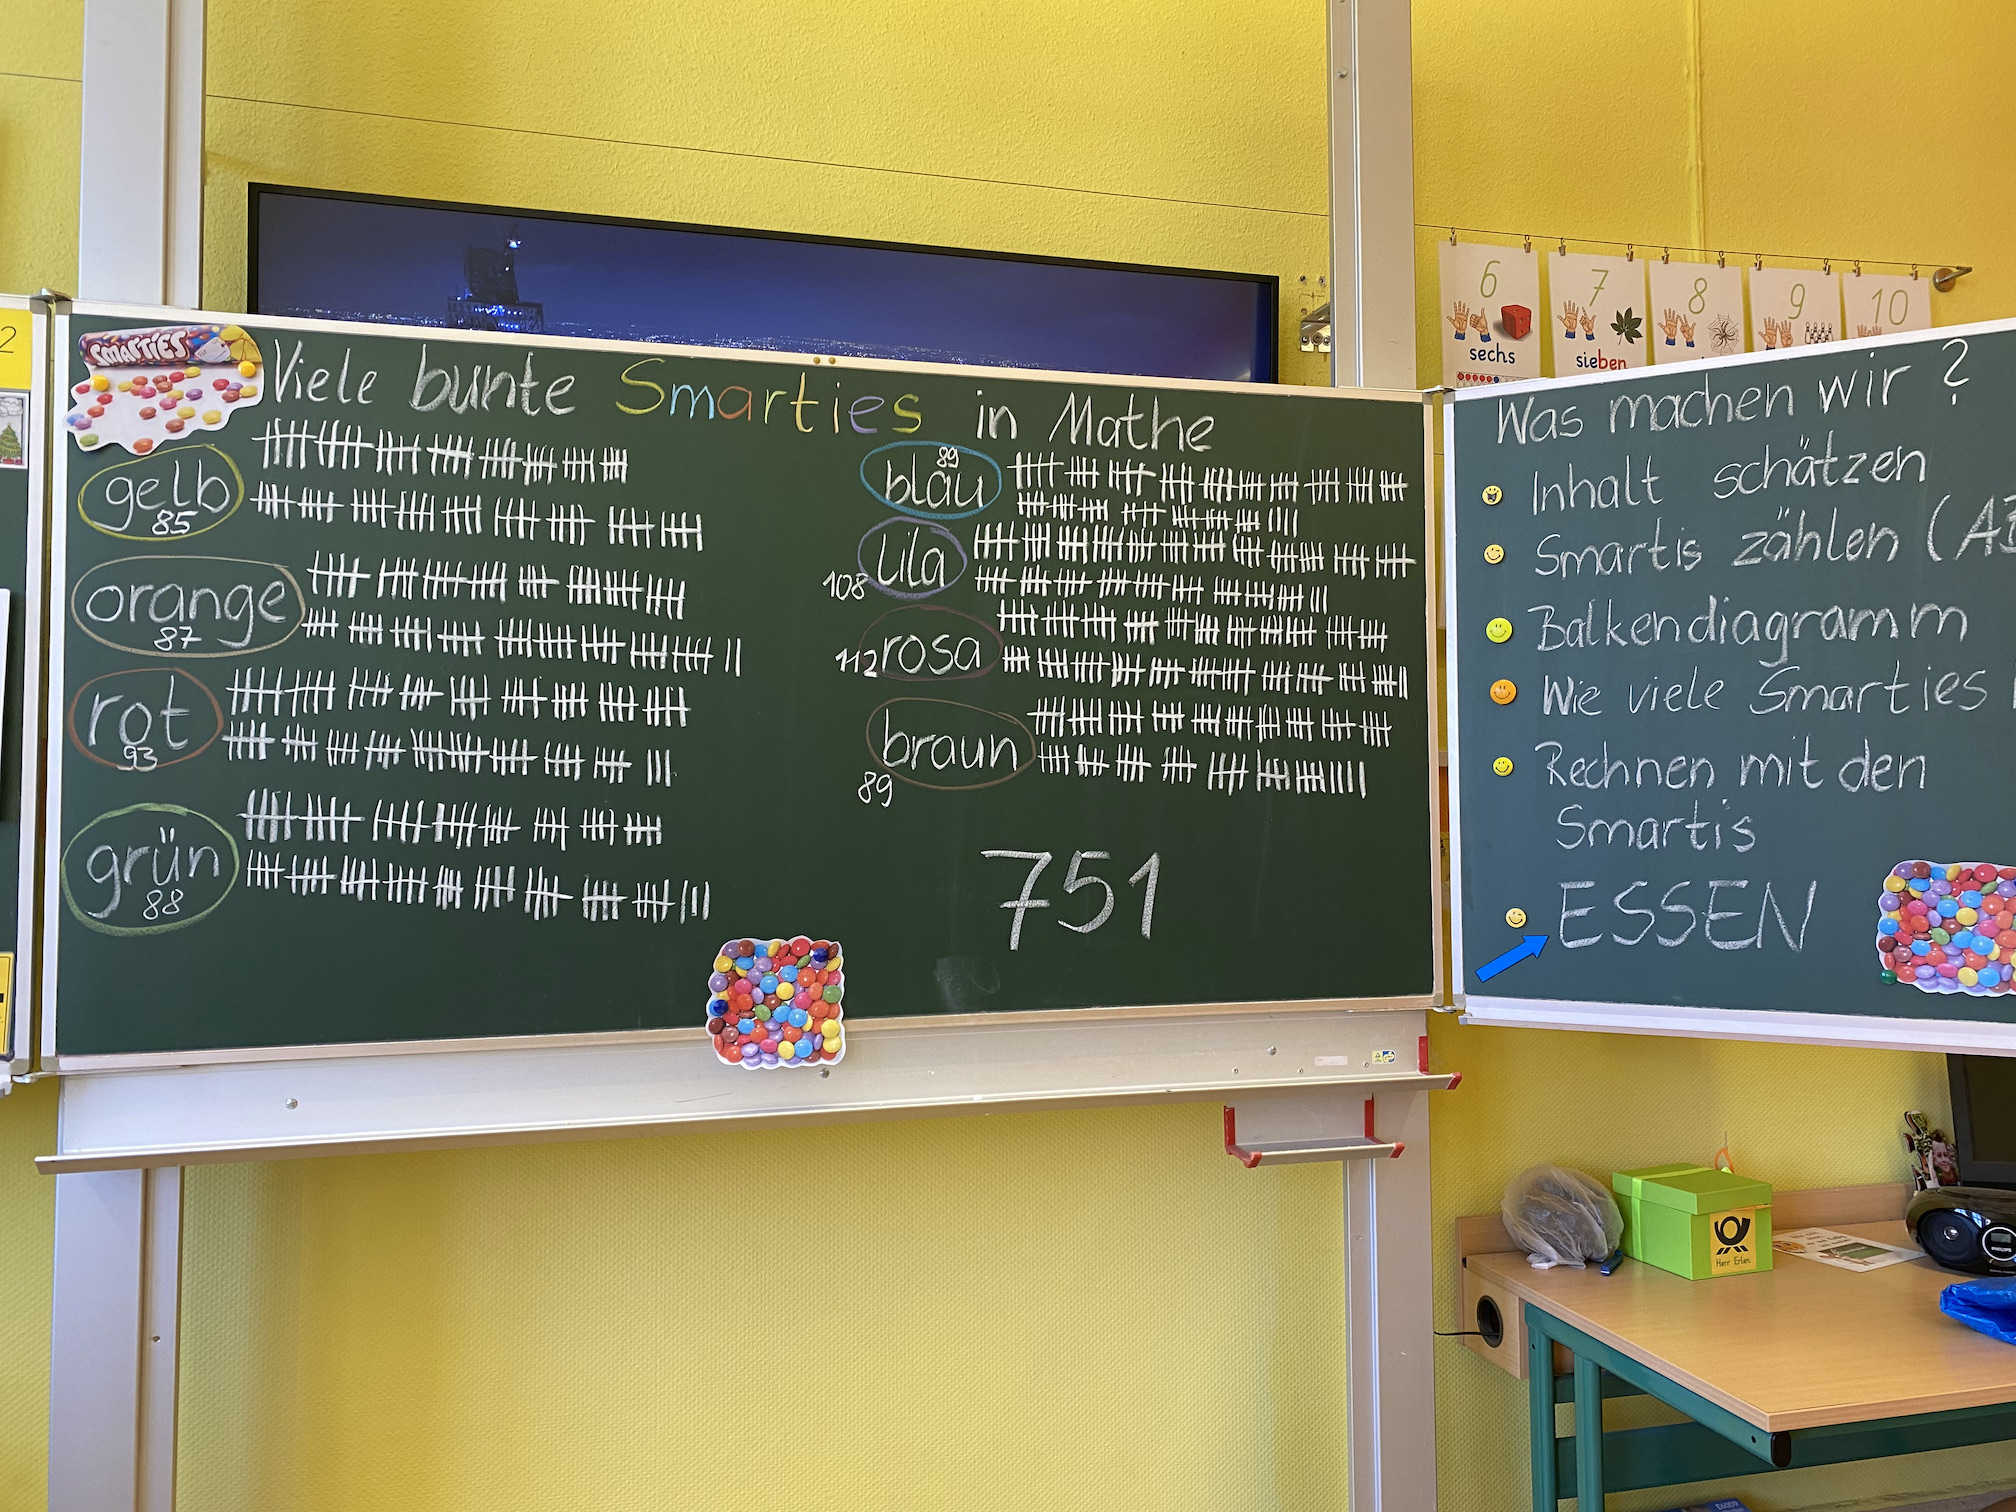 2
smarties
Viele bunte Smarties in Mathe
gelb
85
orange
87
rot
93
grün
88
89
blau
lila
108
112 rosa
braun
89
751
Was machen wir?
Inhalt schätzen
Smartis zählen (A
Balkendiagramm
Wie viele Smarties
Rechnen mit den
Smartis
ESSEN
6
sechs
7
sieben
8
9
10
Herr Erlen
PHILIPS